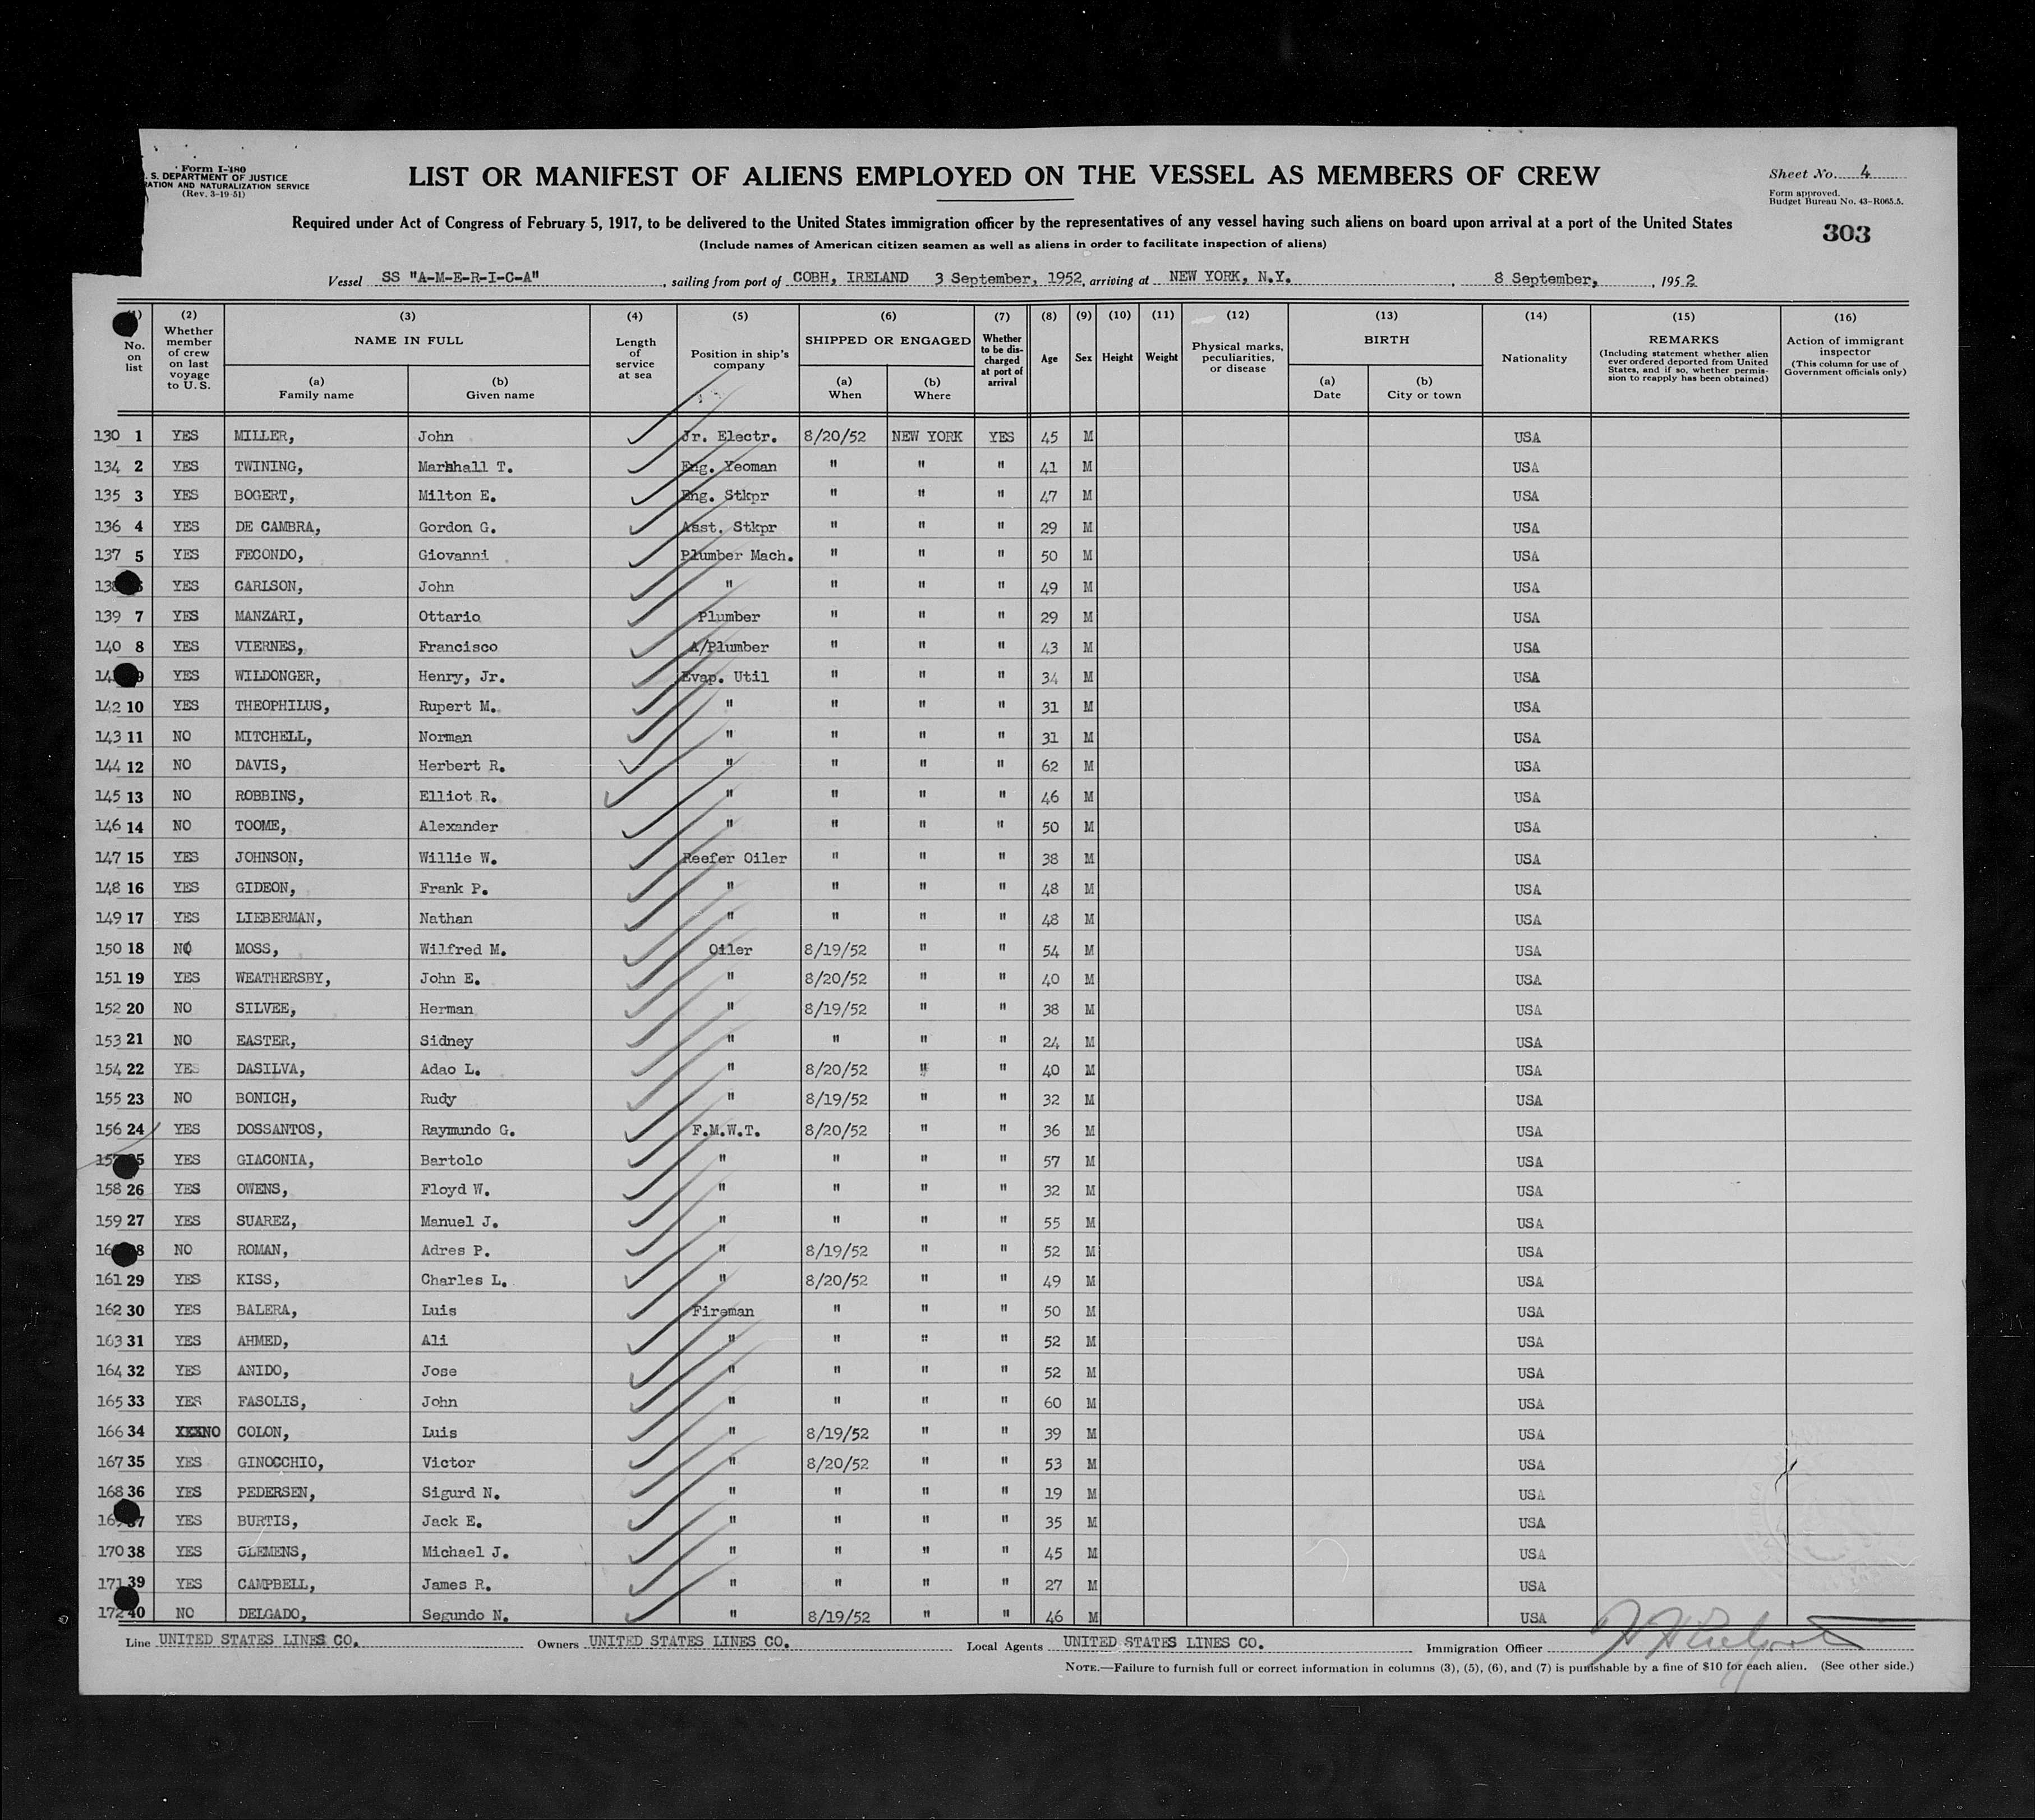 Form I-480
. S. DEPARTMENT OF JUSTICE
RATION AND NATURALIZATION SERVICE
(Rev. 3-19-51)
LIST OR MANIFEST OF ALIENS EMPLOYED ON THE VESSEL AS MEMBERS OF CREW
Sheet No. 4
Form approved.
Budget Bureau No. 43-R065.5.
303
Required under Act of Congress of February 5, 1917, to be delivered to the United States immigration officer by the representatives of any vessel having such aliens on board upon arrival at a port of the United States
(Include names of American citizen seamen as well as aliens in order to facilitate inspection of aliens)
Vessel SS "A-M-E-R-I-C-A", sailing from port of COBH, IRELAND 3 September, 1952, arriving at NEW YORK, N.Y. 8 September, 1952
(1) No. on list (2) Whether member of crew on last voyage to U.S. (3) NAME IN FULL (a) Family name (b) Given name (4) Length of service at sea (5) Position in ship's company (6) SHIPPED OR ENGAGED (a) When (b) Where (7) Whether to be discharged at port of arrival (8) Age (9) Sex (10) Height (11) Weight (12) Physical marks, peculiarities, or disease (13) BIRTH (a) Date (b) City or town (14) Nationality (15) REMARKS (Including statement whether alien ever ordered deported from United States, and if so, whether permission to reapply has been obtained) (16) Action of immigrant inspector (This column for use of Government officials only)
130 1 YES MILLER, John Jr. Electr. 8/20/52 NEW YORK YES 45 M USA
134 2 YES TWINING, Marshall T. Eng. Yeoman " " " 41 M USA
135 3 YES BOGERT, Milton E. Eng. Stkpr " " " 47 M USA
136 4 YES DE CAMBRA, Gordon G. Asst. Stkpr " " " 29 M USA
137 5 YES FECONDO, Giovanni Plumber Mach. " " " 50 M USA
YES CARLSON, John " " " " 49 M USA
139 7 YES MANZARI, Ottario Plumber " " " 29 M USA
140 8 YES VIERNES, Francisco A/Plumber " " " 43 M USA
9 YES WILDONGER, Henry, Jr. Evap. Util " " " 34 M USA
142 10 YES THEOPHILUS, Rupert M. " " " " 31 M USA
143 11 NO MITCHELL, Norman " " " " 31 M USA
144 12 NO DAVIS, Herbert R. " " " " 62 M USA
145 13 NO ROBBINS, Elliot R. " " " " 46 M USA
146 14 NO TOOME, Alexander " " " " 50 M USA
147 15 YES JOHNSON, Willie W. Reefer Oiler " " " 38 M USA
148 16 YES GIDEON, Frank P. " " " " 48 M USA
149 17 YES LIEBERMAN, Nathan " " " " 48 M USA
150 18 NO MOSS, Wilfred M. Oiler 8/19/52 " " 54 M USA
151 19 YES WEATHERSBY, John E. " 8/20/52 " " 40 M USA
152 20 NO SILVEE, Herman " 8/19/52 " " 38 M USA
153 21 NO EASTER, Sidney " " " " 24 M USA
154 22 YES DASILVA, Adao L. " 8/20/52 " " 40 M USA
155 23 NO BONICH, Rudy " 8/19/52 " " 32 M USA
156 24 YES DOSSANTOS, Raymundo G. F.M.W.T. 8/20/52 " " 36 M USA
YES GIACONIA, Bartolo " " " " 57 M USA
158 26 YES OWENS, Floyd W. " " " " 32 M USA
159 27 YES SUAREZ, Manuel J. " " " " 55 M USA
NO ROMAN, Adres P. " 8/19/52 " " 52 M USA
161 29 YES KISS, Charles L. " 8/20/52 " " 49 M USA
162 30 YES BALERA, Luis Fireman " " " 50 M USA
163 31 YES AHMED, Ali " " " " 52 M USA
164 32 YES ANIDO, Jose " " " " 52 M USA
165 33 YES FASOLIS, John " " " " 60 M USA
166 34 XXXNO COLON, Luis " 8/19/52 " " 39 M USA
167 35 YES GINOCCHIO, Victor " 8/20/52 " " 53 M USA
168 36 YES PEDERSEN, Sigurd N. " " " " 19 M USA
YES BURTIS, Jack E. " " " " 35 M USA
170 38 YES CLEMENS, Michael J. " " " " 45 M USA
171 39 YES CAMPBELL, James R. " " " " 27 M USA
172 40 NO DELGADO, Segundo N. " 8/19/52 " " 46 M USA
Line UNITED STATES LINES CO. Owners UNITED STATES LINES CO. Local Agents UNITED STATES LINES CO. Immigration Officer
NOTE.—Failure to furnish full or correct information in columns (3), (5), (6), and (7) is punishable by a fine of $10 for each alien. (See other side.)